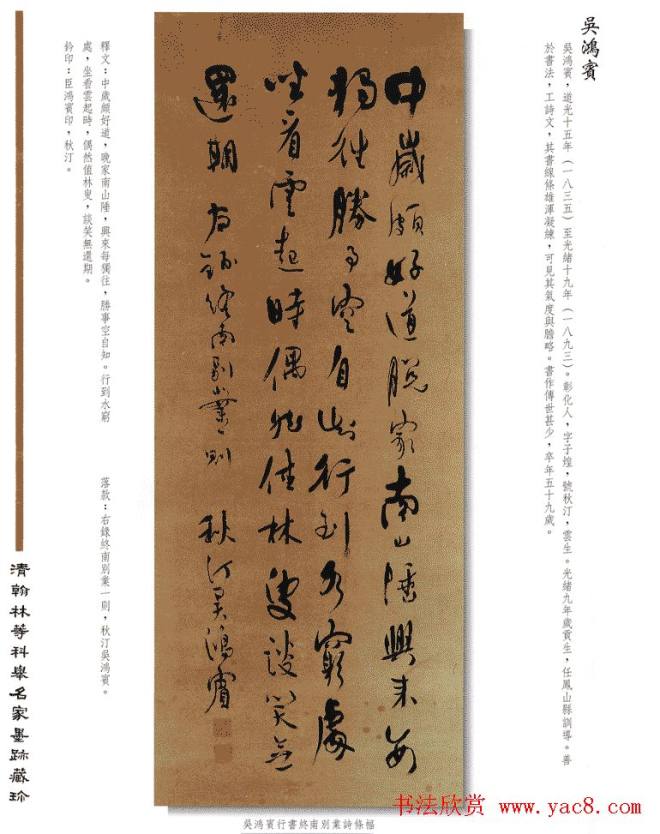 吳鴻賓
吳鴻賓，道光十五年（一八三五）至光緒十九年（一八九三）。彰化人，字子煌，號秋汀，雲生。光緒九年歲貢生，任鳳山縣訓導。善
於書法，工詩文，其書線條雄渾凝練，可見其氣度與膽略。書作傳世甚少，卒年五十九歲。
中歲頗好道晚家南山陲興来每
獨往勝事空自知行到水窮處
坐看雲起時偶然值林叟談笑無
還期 右録終南別業一則 秋汀吳鴻賓
釋文：中歲頗好道，晚家南山陲，興來每獨往，勝事空自知。行到水窮
處，坐看雲起時，偶然值林叟，談笑無還期。
鈐印：臣鴻賓印，秋汀。
落款：右錄終南別業一則，秋汀吳鴻賓。
清翰林等科舉名家墨跡藏珍
吳鴻賓行書終南別業詩條幅
书法欣赏 www.yac8.com